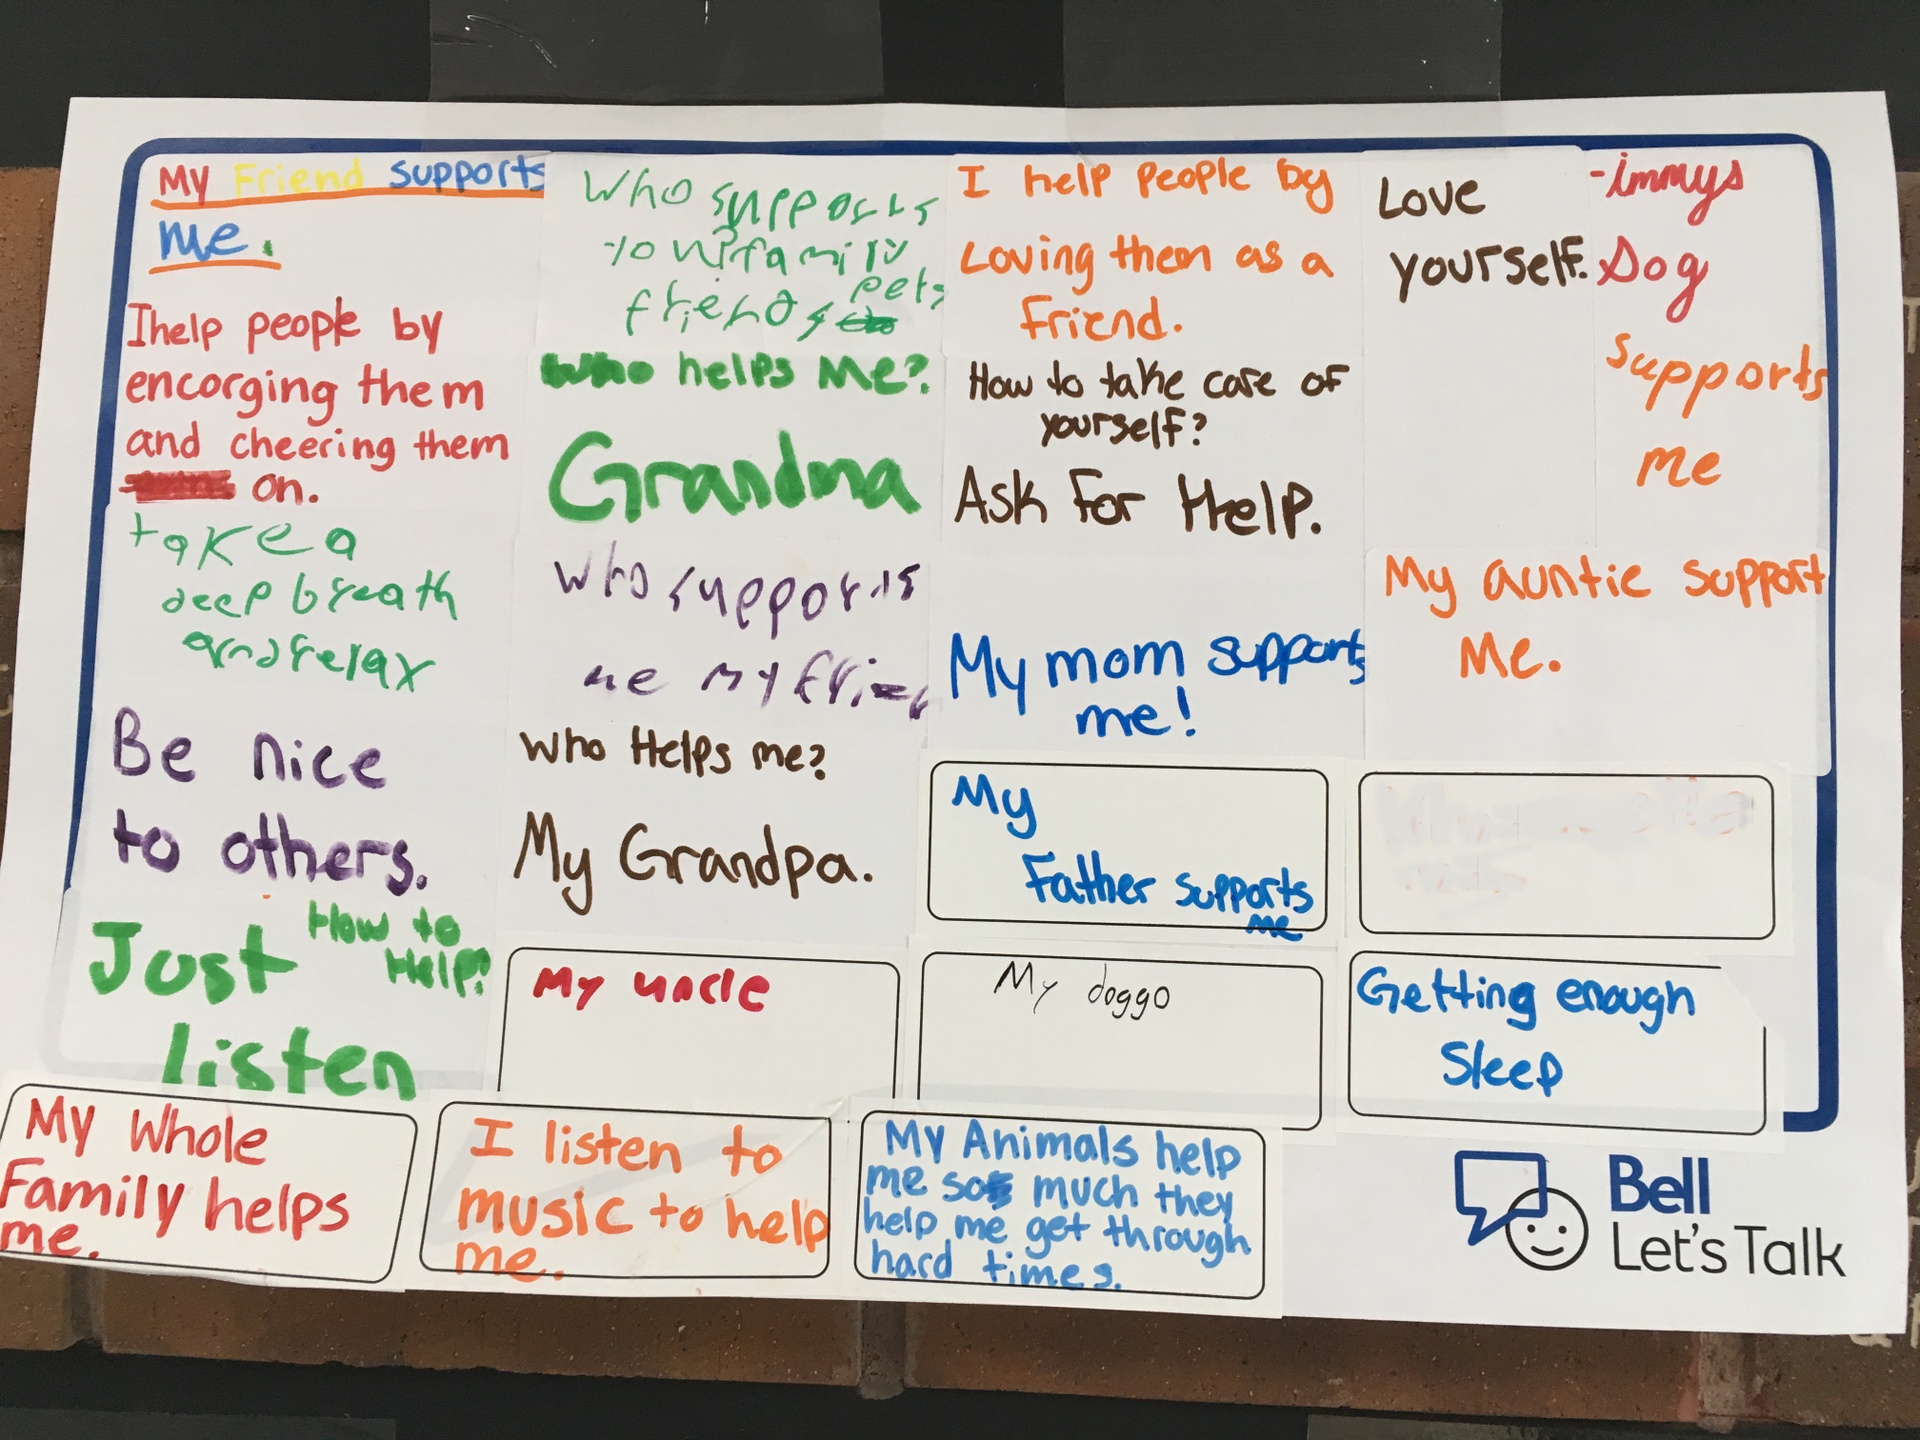 My Friend supports
me.
Ihelp people by
encorging them
and cheering them
on.
take a
deep breath
and relax
Be nice
to others.
Just
How to
Help?
listen
My Whole
Family helps
me.
Who supports
you? family
friends pets
Who helps Me?
Grandma
who supports
me my
Who Helps me?
My Grandpa.
My uncle
I listen to
music to help
me.
I help people by
Loving them as a
Friend.
How to take care of
yourself?
Ask For Help.
My mom supports
me!
My
Father supports
me
My doggo
My Animals help
me so much they
help me get through
hard times.
Love
yourself.
-immys
Dog
supports
me
My auntie support
Me.
Getting enough
Sleep
Bell
Let's Talk